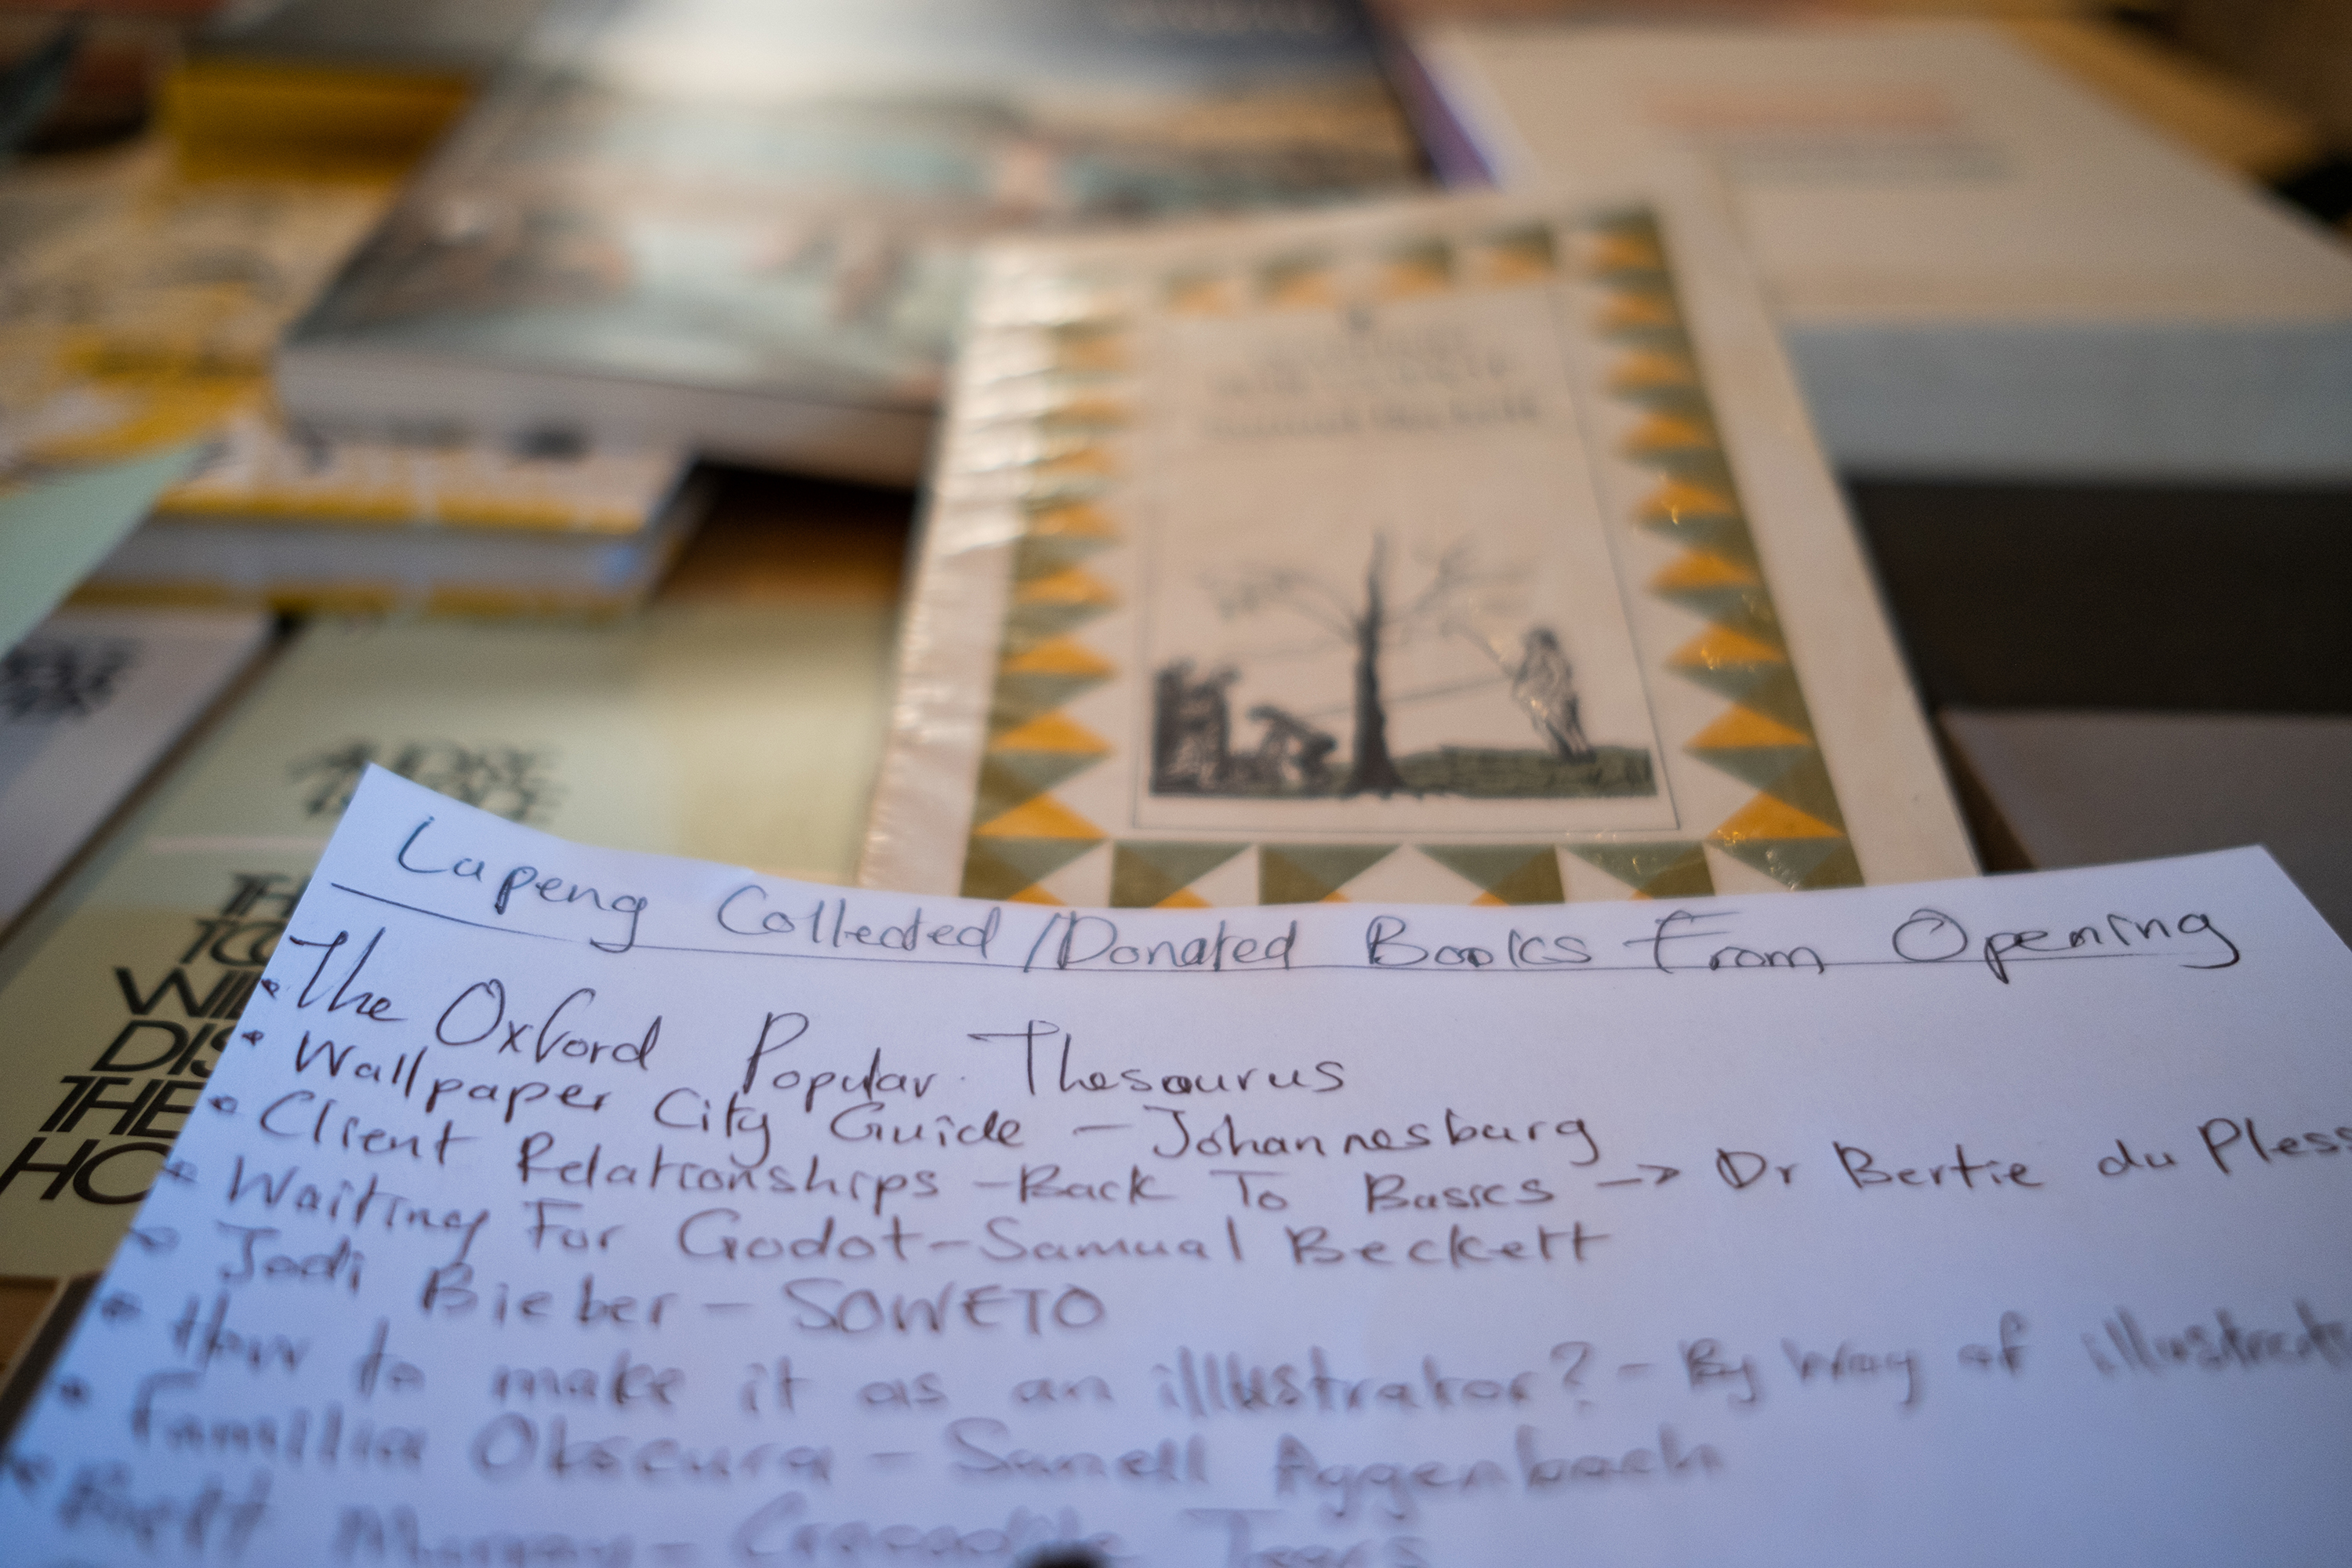 Samuel Beckett
AUDRE
LORDE
THE
WILL
DIS
THE
HO
Lapeng Collected/Donated Books From Opening
• The Oxford Popular Thesaurus
• Wallpaper City Guide – Johannesburg
• Client Relationships – Back To Basics → Dr Bertie du Pless
• Waiting For Godot – Samual Beckett
• Jodi Bieber – SOWETO
• How to make it as an illustrator? – By Way of illustrat
• Familia Obscura – Sanell Aggenbach
• Brett Murray – Crocodile Tears